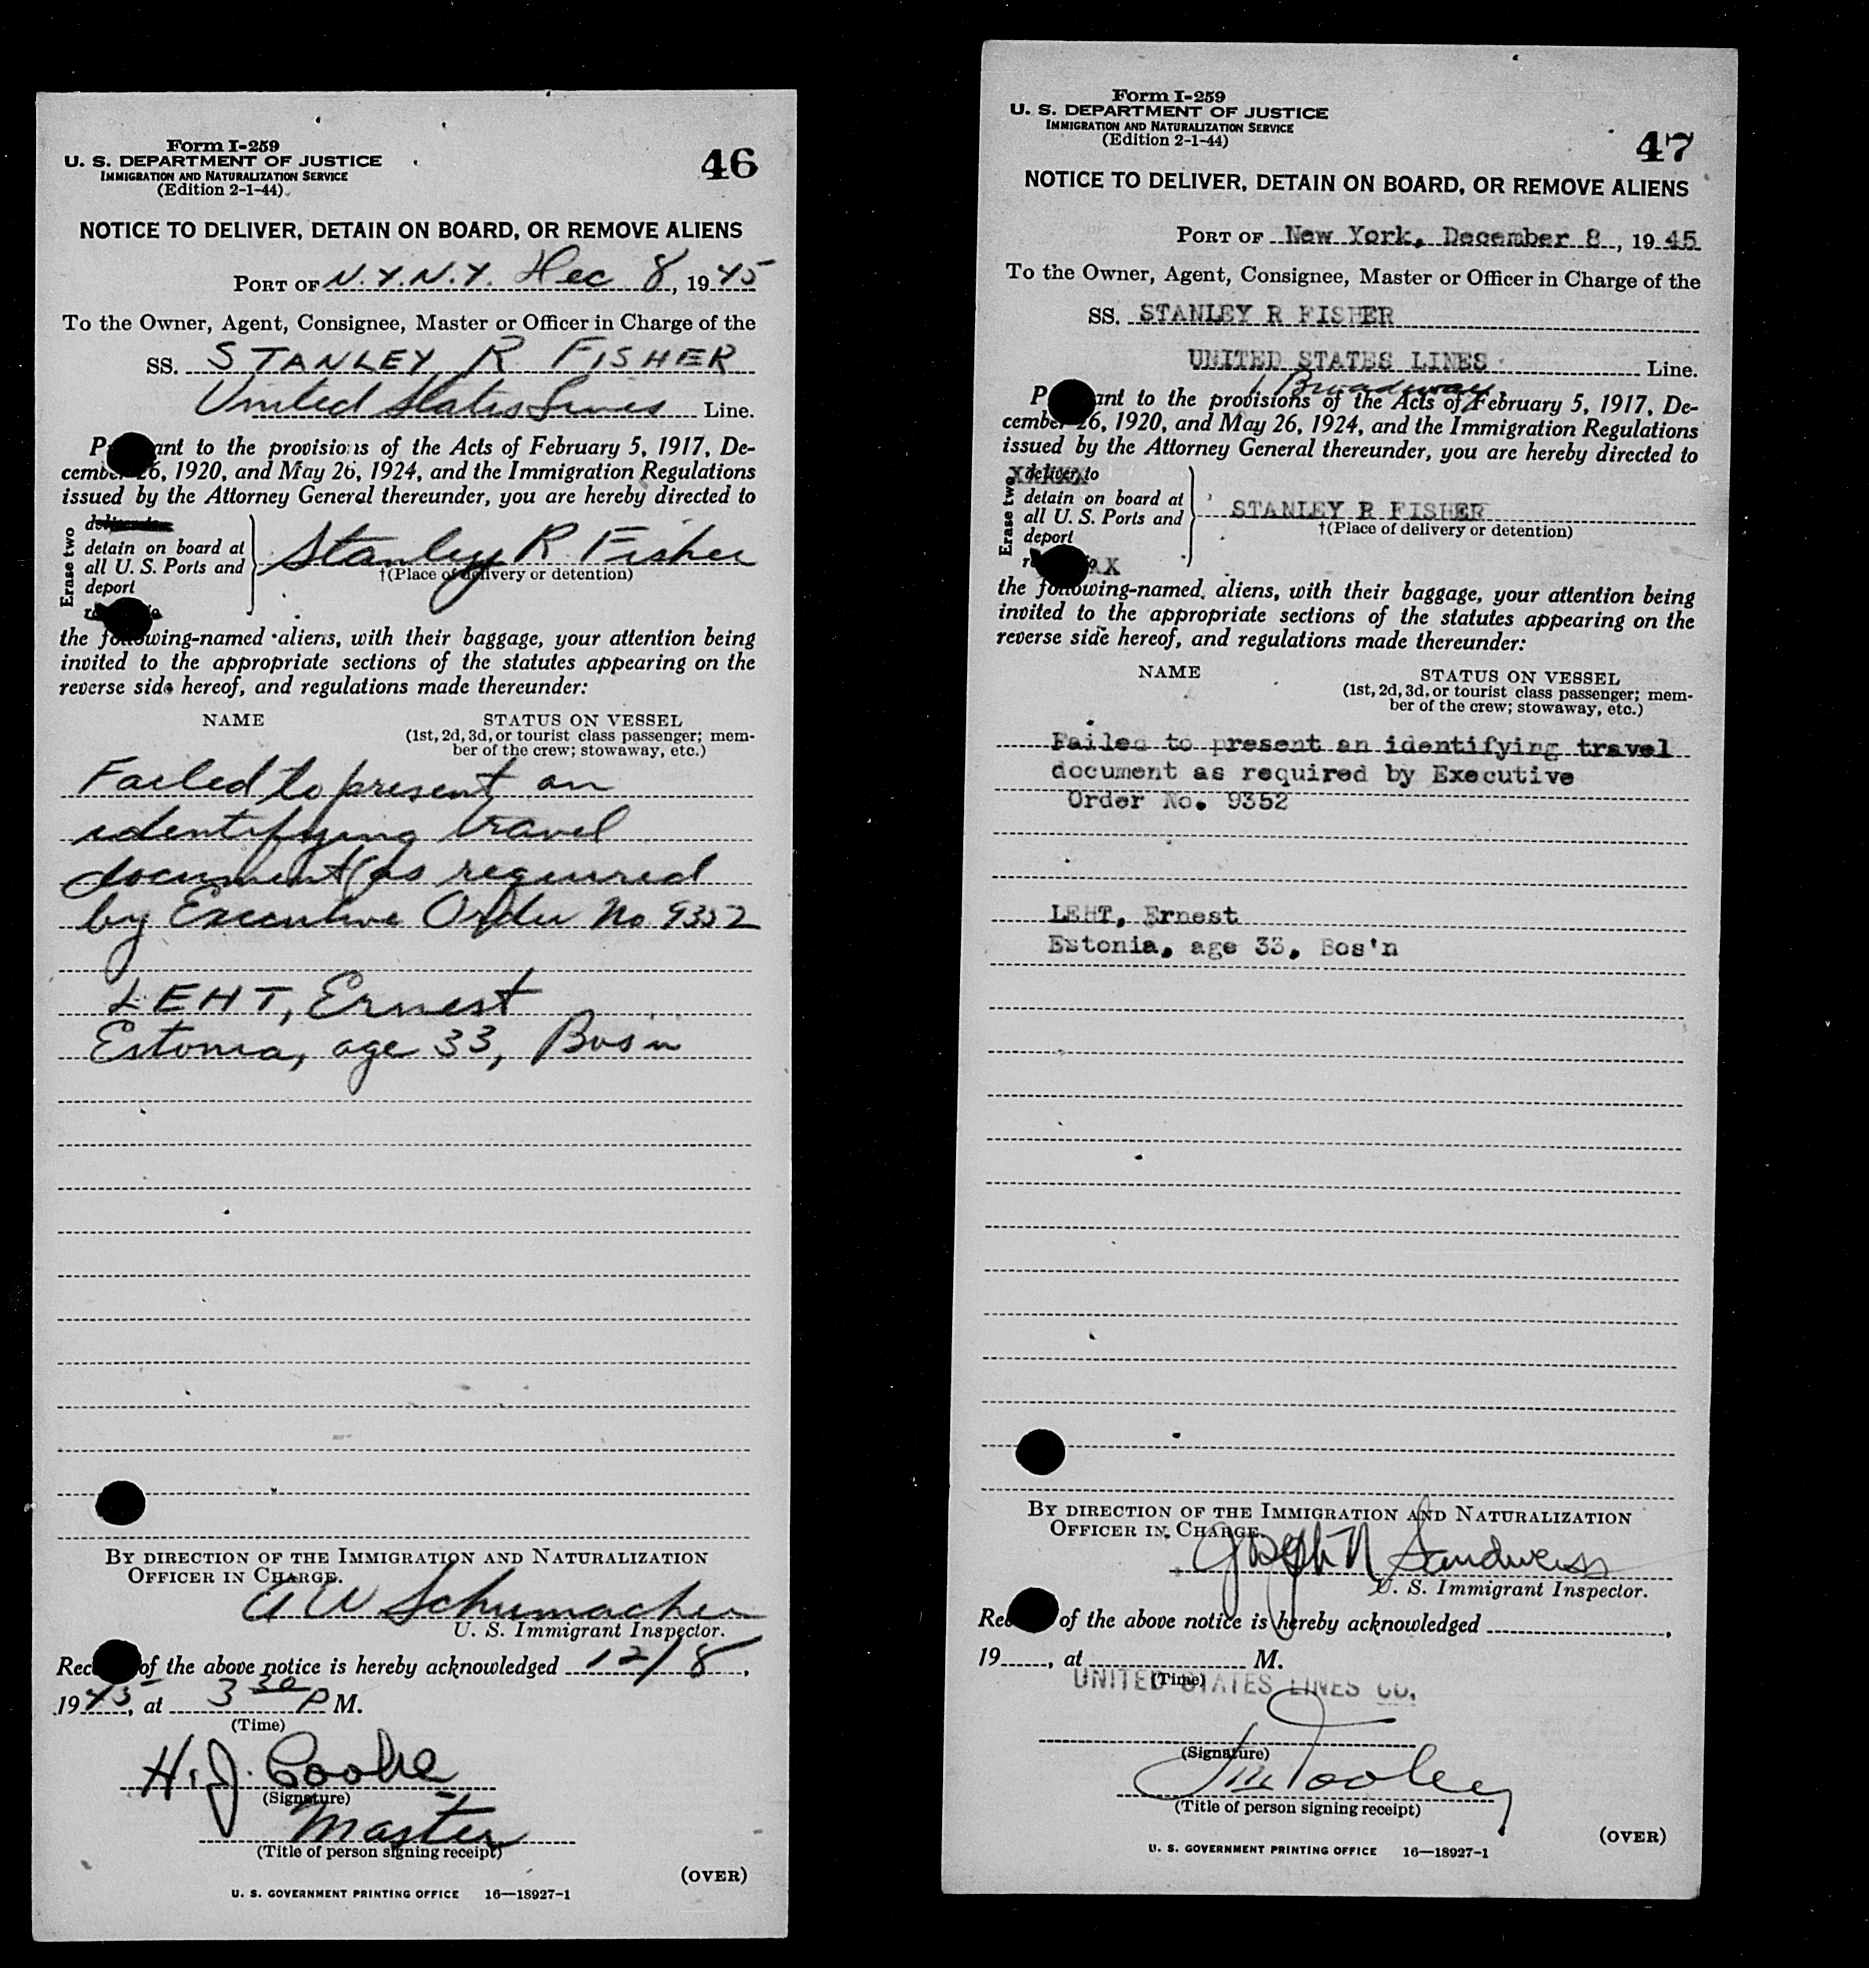 Form I-259
U. S. DEPARTMENT OF JUSTICE
IMMIGRATION AND NATURALIZATION SERVICE
(Edition 2-1-44)
46
NOTICE TO DELIVER, DETAIN ON BOARD, OR REMOVE ALIENS
PORT OF N.Y.N.Y. Dec 8, 1945
To the Owner, Agent, Consignee, Master or Officer in Charge of the
SS. STANLEY R FISHER
United States Lines Line.
P ant to the provisions of the Acts of February 5, 1917, De-
cember 26, 1920, and May 26, 1924, and the Immigration Regulations
issued by the Attorney General thereunder, you are hereby directed to
Erase two
detain on board at
all U. S. Ports and
deport
Stanley R Fisher
†(Place of delivery or detention)
the following-named aliens, with their baggage, your attention being
invited to the appropriate sections of the statutes appearing on the
reverse side hereof, and regulations made thereunder:
NAME STATUS ON VESSEL
(1st, 2d, 3d, or tourist class passenger; mem-
ber of the crew; stowaway, etc.)
Failed to present an
identifying travel
document as required
by Executive Order No 9352
LEHT, Ernest
Estonia, age 33, Bosn
BY DIRECTION OF THE IMMIGRATION AND NATURALIZATION
OFFICER IN CHARGE.
A W Schumacher
U. S. Immigrant Inspector.
Rec of the above notice is hereby acknowledged 12/8,
1945, at 3 30 P M.
(Time)
H. J. Cooke
(Signature)
Master
(Title of person signing receipt)
(OVER)
U. S. GOVERNMENT PRINTING OFFICE 16—18927-1
Form I-259
U. S. DEPARTMENT OF JUSTICE
IMMIGRATION AND NATURALIZATION SERVICE
(Edition 2-1-44)
47
NOTICE TO DELIVER, DETAIN ON BOARD, OR REMOVE ALIENS
PORT OF New York, December 8, 1945
To the Owner, Agent, Consignee, Master or Officer in Charge of the
SS. STANLEY R FISHER
UNITED STATES LINES Line.
1 Broadway
P ant to the provisions of the Acts of February 5, 1917, De-
cember 26, 1920, and May 26, 1924, and the Immigration Regulations
issued by the Attorney General thereunder, you are hereby directed to
Erase two
deliver to
detain on board at
all U. S. Ports and
deport
STANLEY R FISHER
†(Place of delivery or detention)
the following-named aliens, with their baggage, your attention being
invited to the appropriate sections of the statutes appearing on the
reverse side hereof, and regulations made thereunder:
NAME STATUS ON VESSEL
(1st, 2d, 3d, or tourist class passenger; mem-
ber of the crew; stowaway, etc.)
Failed to present an identifying travel
document as required by Executive
Order No. 9352
LEHT, Ernest
Estonia, age 33, Bos'n
BY DIRECTION OF THE IMMIGRATION AND NATURALIZATION
OFFICER IN CHARGE.
Joseph N Sandweiss
U. S. Immigrant Inspector.
Re of the above notice is hereby acknowledged ,
19 , at M.
(Time)
UNITED STATES LINES CO.
(Signature)
Tooley
(Title of person signing receipt)
(OVER)
U. S. GOVERNMENT PRINTING OFFICE 16—18927-1